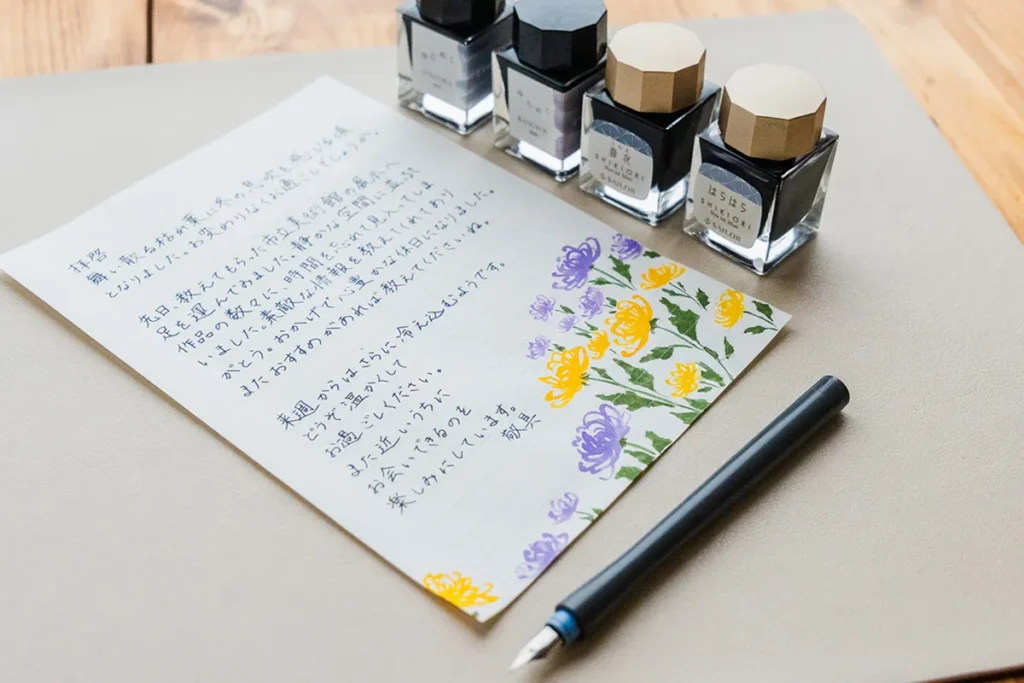 拝啓
舞い散る枯れ葉に冬の
となりました。お変わりなくお過ごしでしょうか。
先日、教えてもらった市立美術館の展示へ
足を運んでみました。静かな空間に並ぶ
作品の数々に、時間を忘れて見入ってしま
いました。素敵な情報を教えてくれてあり
がとう。おかげで心豊かな休日になりました。
またおすすめがあれば教えてくださいね。
来週からはさらに冷え込むようです。
どうぞ温かくして
お過ごしください。
また近いうちに
お会いできるのを
楽しみにしています。
敬具
SHIKIORI
SAILOR
はらはら
SHIKIORI
SAILOR